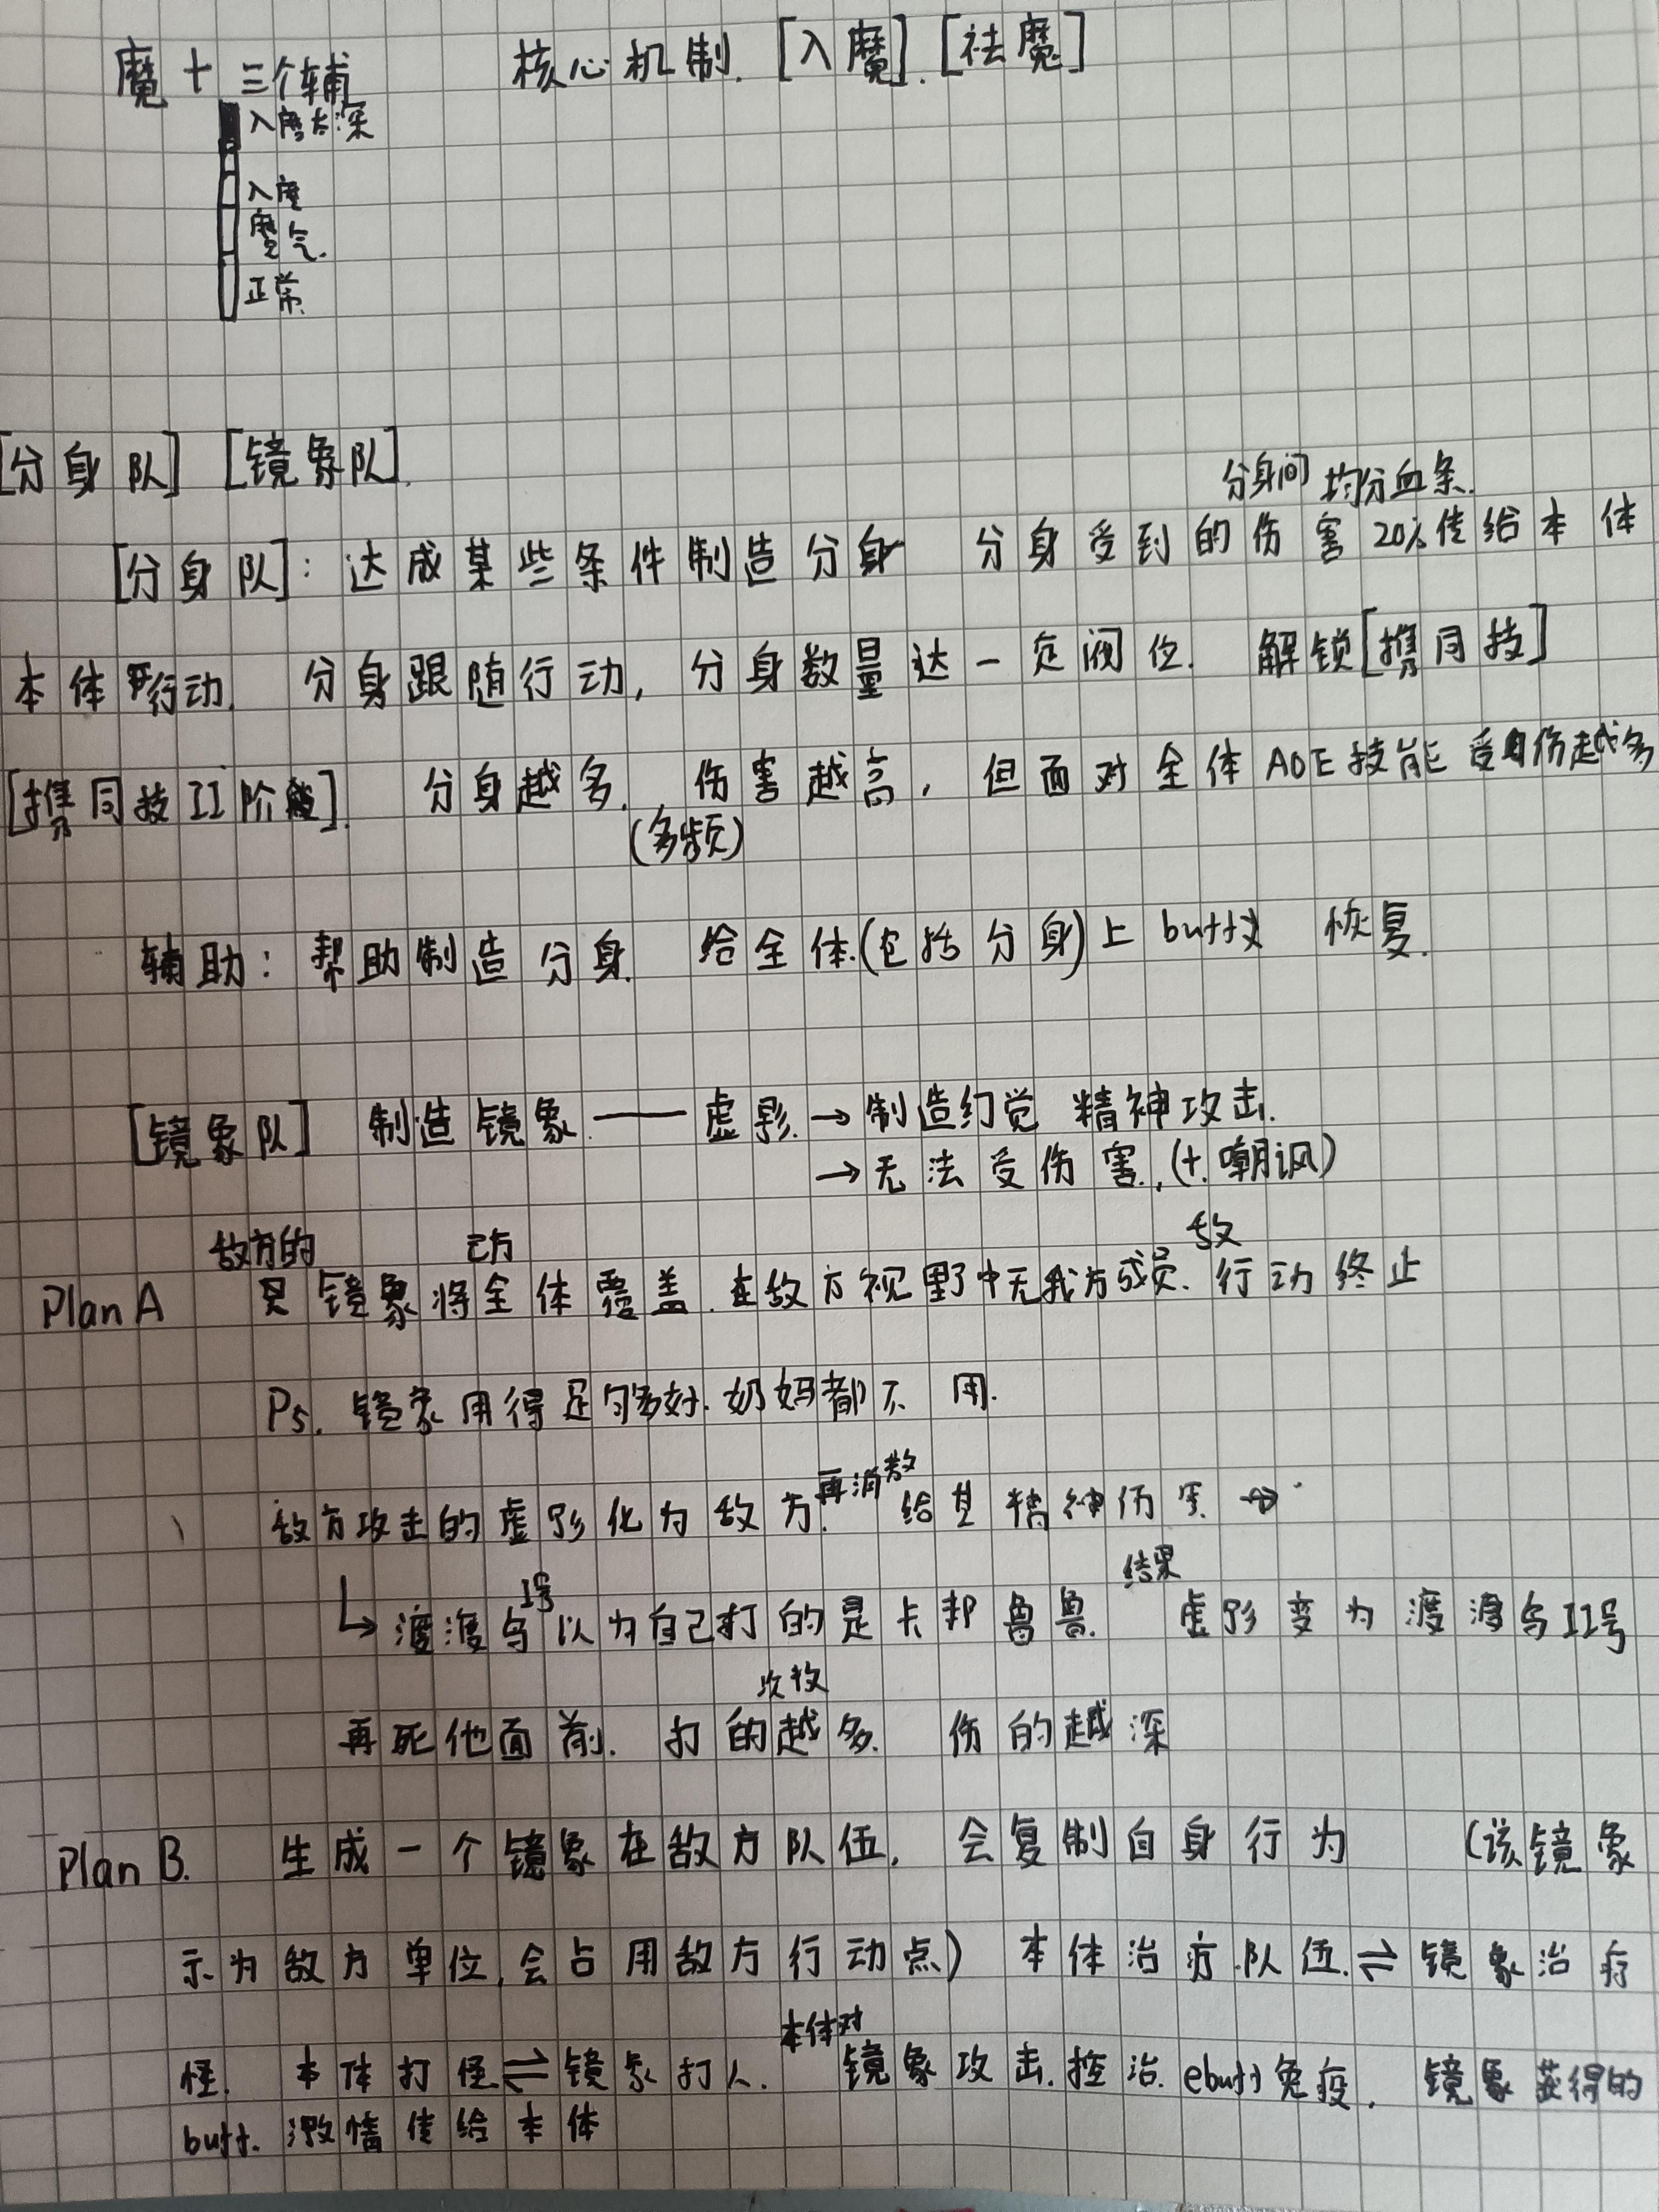 魔＋三个辅 核心机制.[入魔].[祛魔]
入魔太深
入魔
魔气.
正常
[分身队] [镜象队].
分身间 均分血条.
[分身队]: 达成某些条件制造分身 分身受到的伤害20%传给本体
本体 行动. 分身跟随行动, 分身数量达一定阀值. 解锁[携同技]
[携同技II阶段]. 分身越多. 伤害越高, 但面对全体AOE技能 受 伤越多
(多频)
辅助: 帮助制造分身. 给全体(包括分身)上buff 恢复.
[镜象队] 制造镜象 —— 虚影. → 制造幻觉 精神攻击.
→ 无法受伤害.(+.嘲讽)
敌方的 己方 敌
Plan A 镜象将全体覆盖. 在敌方视野中无我方成员. 行动终止
Ps. 镜象用得足够好. 奶妈都不用.
再消散
敌方攻击的虚影化为敌方. 给其精神伤害 →
I号 结果
↳ 渡渡鸟以为自己打的是卡邦鲁兽. 虚影变为渡渡鸟II号
次数
再死他面前. 打的越多. 伤的越深
Plan B. 生成一个镜象在敌方队伍, 会复制自身行为 (该镜象
示为敌方单位, 会占用敌方行动点) 本体治疗队伍. ⇌ 镜象治疗
本体对
怪. 本体打怪 ⇌ 镜象打人. 镜象攻击.控治. ebuff免疫. 镜象获得的
buff. 激情传给本体